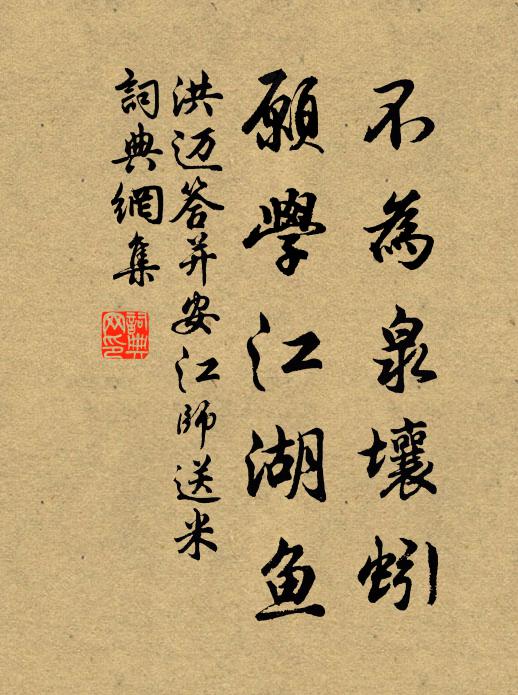 不為泉壤蚓
願學江湖鱼
洪迈答并安江師送米
詞典網集
詞典网印